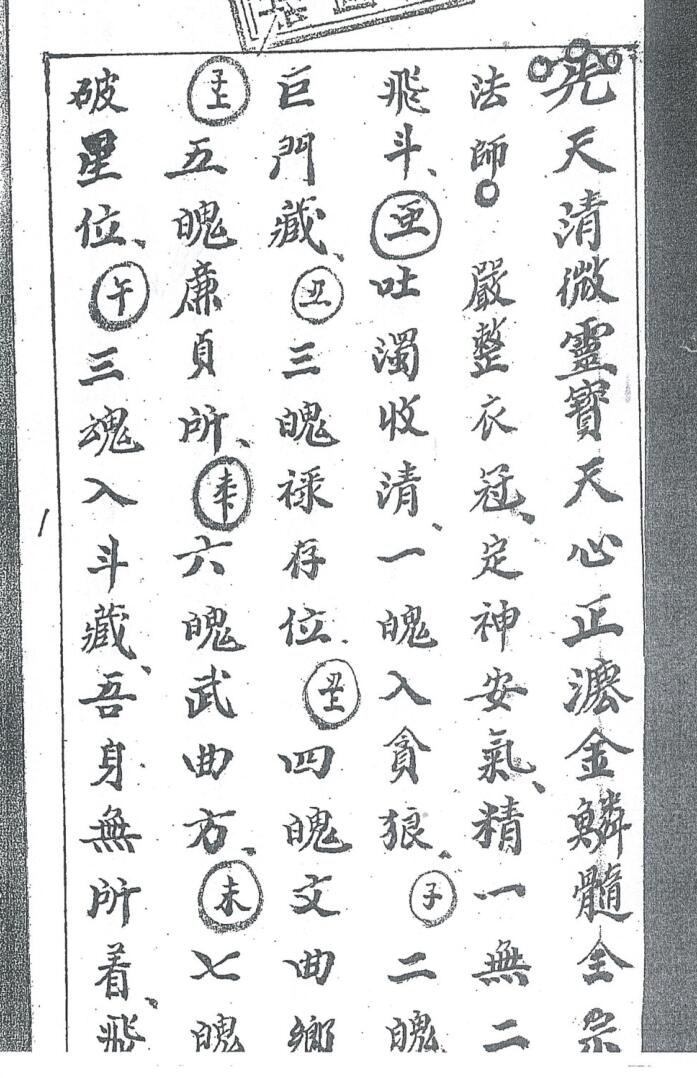 先天清微靈寶天心正灋金鱗髓全宗
法師嚴整衣冠、定神安氣、精一無二
飛斗、亙吐濁收清、一魄入貪狼、子二魄
巨門藏、丑三魄祿存位、丑上四魄文曲鄉
子上五魄廉貞所、未下六魄武曲方、未七魄
破星位、午三魂入斗藏、吾身無所着、飛